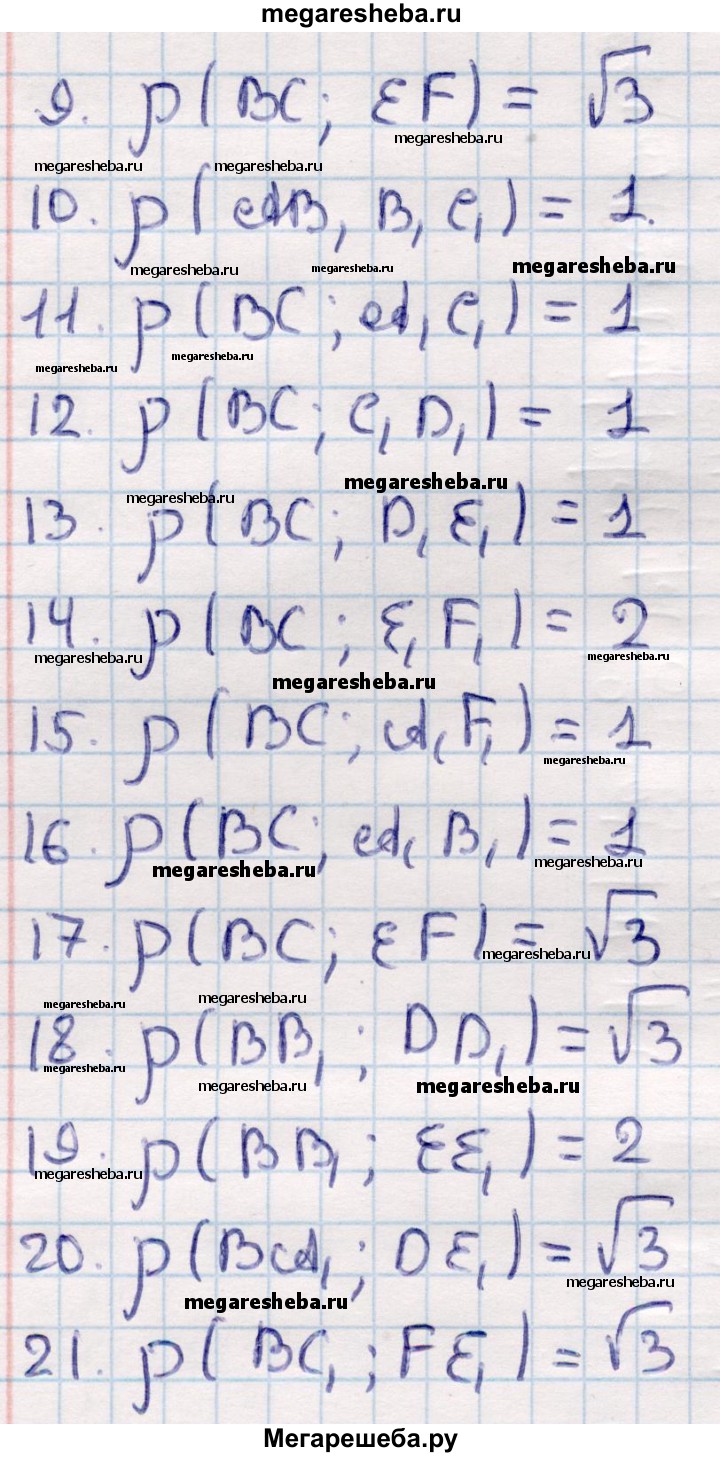 megaresheba.ru
9. ρ(BC; EF) = √3
megaresheba.ru
megaresheba.ru megaresheba.ru
10. ρ(AB, B₁C₁) = 1.
megaresheba.ru megaresheba.ru megaresheba.ru
11. ρ(BC; A₁C₁) = 1
megaresheba.ru megaresheba.ru
12. ρ(BC; C₁D₁) = 1
megaresheba.ru
megaresheba.ru
13. ρ(BC; D₁E₁) = 1
14. ρ(BC; E₁F₁) = 2
megaresheba.ru megaresheba.ru
megaresheba.ru
15. ρ(BC; A₁F₁) = 1
megaresheba.ru
16. ρ(BC; A₁B₁) = 1
megaresheba.ru megaresheba.ru
17. ρ(BC; EF) = √3
megaresheba.ru
megaresheba.ru megaresheba.ru
18. ρ(BB₁; DD₁) = √3
megaresheba.ru
megaresheba.ru megaresheba.ru
19. ρ(BB₁; EE₁) = 2
megaresheba.ru
20. ρ(BA₁; DE₁) = √3
megaresheba.ru
megaresheba.ru
21. ρ(BC₁; FE₁) = √3
Мегарешеба.ру